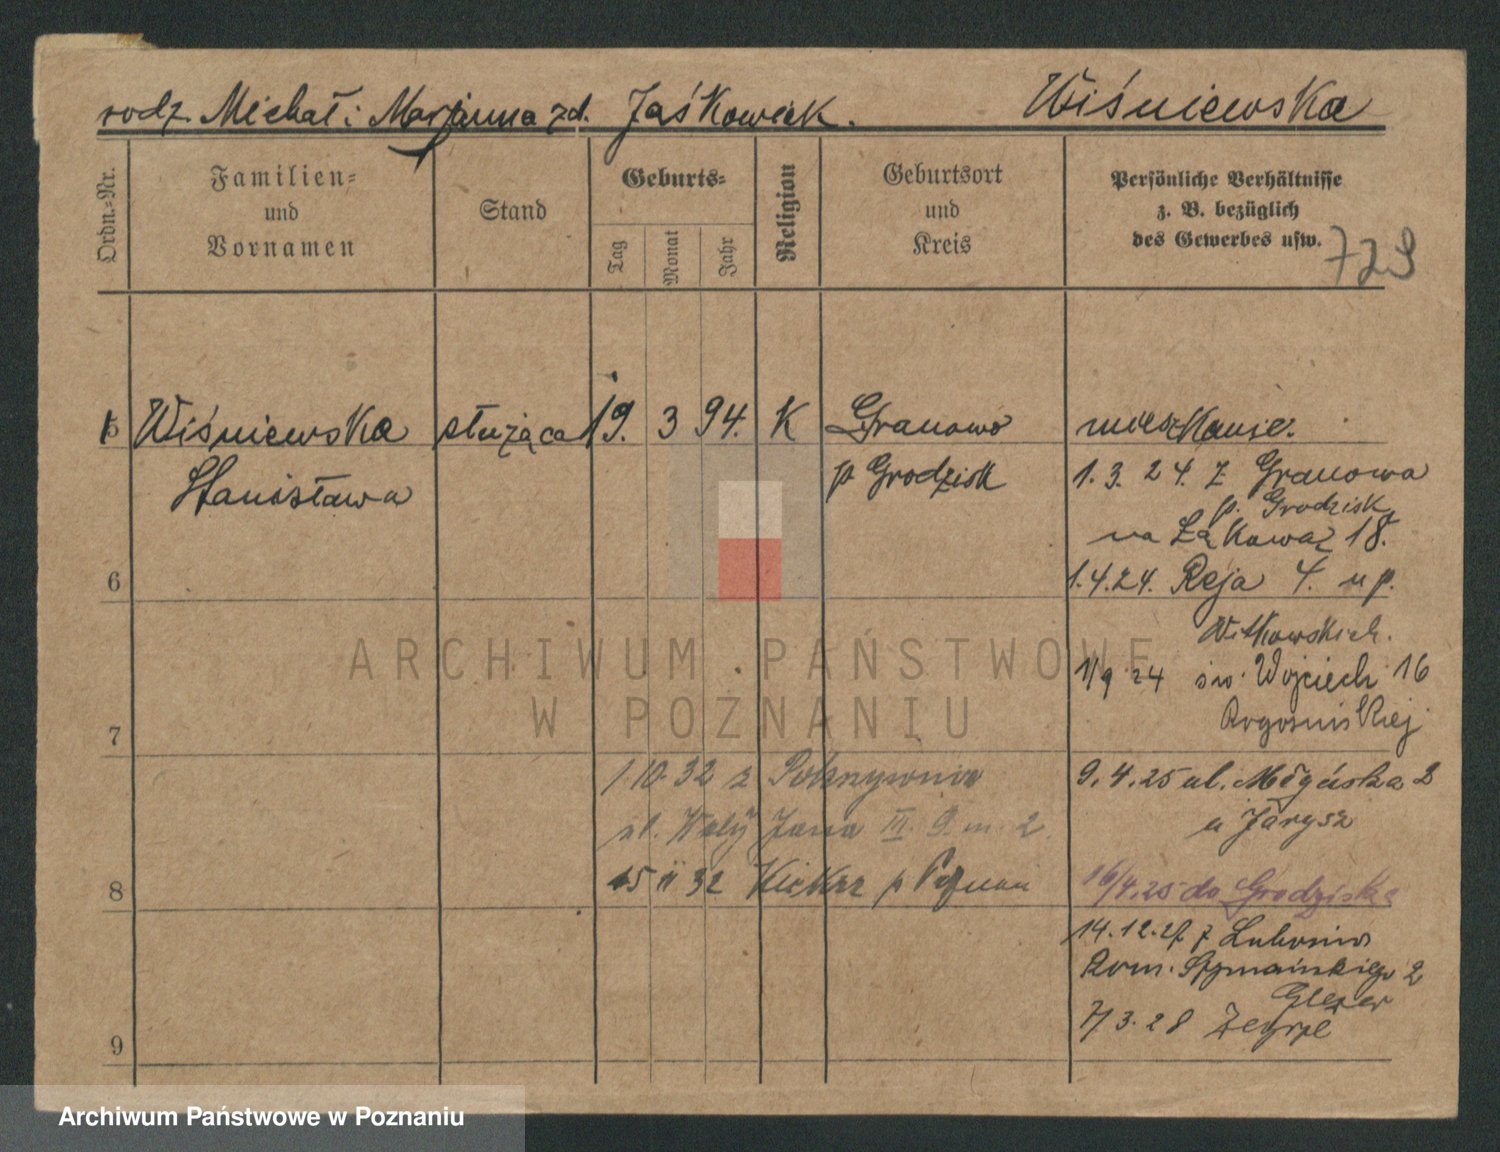 rodz. Michał i Marjanna zd. Jaśkowiak. Wiśniewska
Ordn.-Nr.
Familien-
und
Vornamen
Stand
Geburts-
Tag
Monat
Jahr
Religion
Geburtsort
und
Kreis
Persönliche Verhältnisse
z. B. bezüglich
des Gewerbes usw.
729
5 Wiśniewska służąca 19. 3 94. K Granowo mieszkanie.
Stanisława p Grodzisk 1. 3. 24. z Granowa
p. Grodzisk
na Łąkową 18.
6 1.4.24. Reja 4. u p.
Witkowskich.
1/9 24 św. Wojciech 16
7 Rogosińskiej
1 10 32 z Pokrzywnia 9.4.25 ul. Młyńska 2
ul. Wały Jana III 9 m 2. u Jarysz
8 15 11 32 Kiekrz p Poznań 16/4.25 do Grodziska
14.12.27 z Lubosin
Rom. Szymańskiego 2
Glezer
7/3.28
9
ARCHIWUM PAŃSTWOWE
W POZNANIU
Archiwum Państwowe w Poznaniu